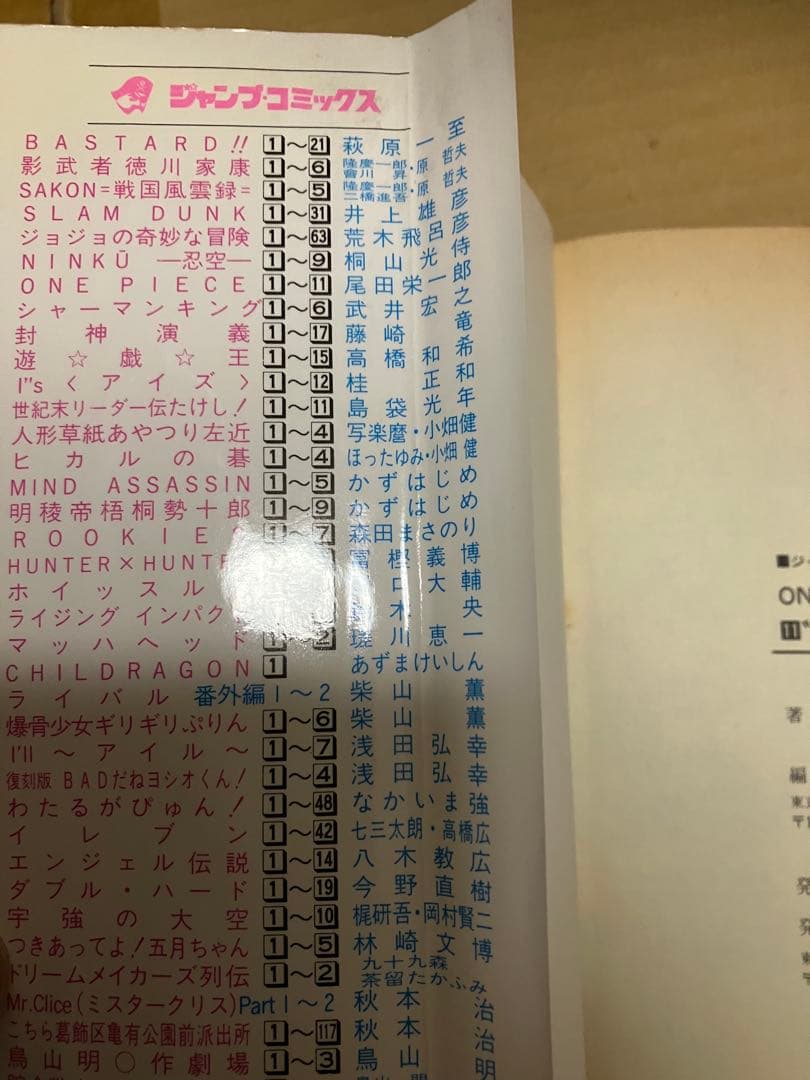 ジャンプ・コミックス
BASTARD!! 1～21 萩原一至
影武者徳川家康 1～6 隆慶一郎・會川昇・原哲夫
SAKON=戦国風雲録= 1～5 隆慶一郎・二橋進吾・原哲夫
SLAM DUNK 1～31 井上雄彦
ジョジョの奇妙な冒険 1～63 荒木飛呂彦
NINKŪ —忍空— 1～9 桐山光侍
ONE PIECE 1～11 尾田栄一郎
シャーマンキング 1～6 武井宏之
封神演義 1～17 藤崎竜
遊☆戯☆王 1～15 高橋和希
I"s〈アイズ〉 1～12 桂正和
世紀末リーダー伝たけし! 1～11 島袋光年
人形草紙あやつり左近 1～4 写楽麿・小畑健
ヒカルの碁 1～4 ほったゆみ・小畑健
MIND ASSASSIN 1～5 かずはじめ
明稜帝梧桐勢十郎 1～9 かずはじめ
ROOKIE 〜7 森田まさのり
HUNTER×HUNTE 冨樫義博
ホイッスル 口大輔
ライジング インパク 木央
マッハヘッド 1～2 瑳川恵一
CHILDRAGON 1 あずまけいしん
ライバル 番外編1～2 柴山薫
爆骨少女ギリギリぷりん 1～6 柴山薫
I'll ～アイル～ 1～7 浅田弘幸
復刻版 BADだねヨシオくん! 1～4 浅田弘幸
わたるがぴゅん! 1～48 なかいま強
イレブン 1～42 七三太朗・高橋広
エンジェル伝説 1～14 八木教広
ダブル・ハード 1～19 今野直樹
宇強の大空 1～10 梶研吾・岡村賢二
つきあってよ!五月ちゃん 1～5 林崎文博
ドリームメイカーズ列伝 1～2 九十九森 茶留たかふみ
Mr.Clice(ミスタークリス)Part1～2 秋本治
こちら葛飾区亀有公園前派出所 1～117 秋本治
鳥山明○作劇場 1～3 鳥山明
■ジ
ON
11
著
編
東
〒1
発
発
東
〒